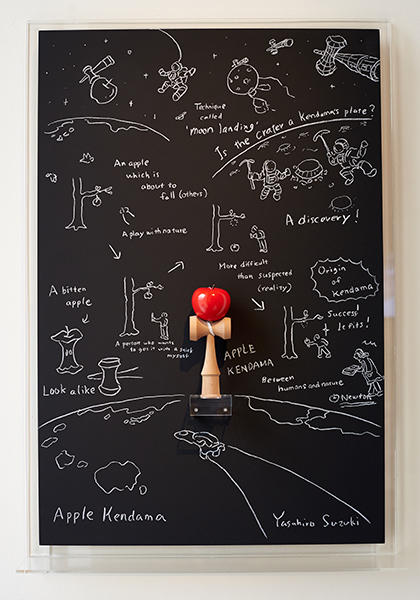 Technique
called
'moon landing'
Is the crater a kendama's plate?
An apple
which is
about to
fall (others)
A play with nature
A discovery!
More difficult
than suspected
(reality)
A bitten
apple
A person who wants
to get it with a
myself
Origin
of
Kendama
Success!
It fits!
Look alike
APPLE
KENDAMA
Between
humans and nature
Newton
Apple Kendama
Yasuhiro Suzuki